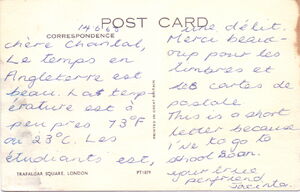 POST CARD
14.6.68
CORRESPONDENCE
chère Chantal,
Le temps en
Angleterre est
beau. La temp
érature est à
peu près 73°F
ou 23°C. Les
étudiants est,
TRAFALGAR SQUARE, LONDON
PT1079
une délit.
Merci beau-
coup pour les
timbres et
les cartes de
postale
This is a short
letter because
I've to go to
school soon.
your true
penfriend
Jacinta.